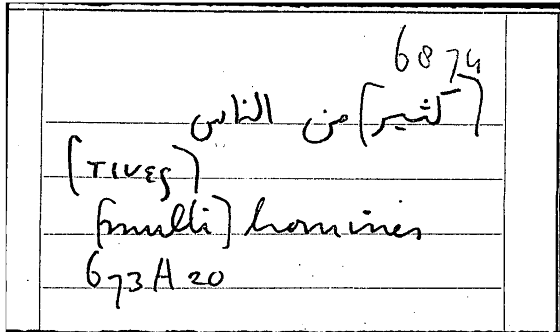 6874
(كثير) من الناس
(τινες)
[multi] homines
673A20